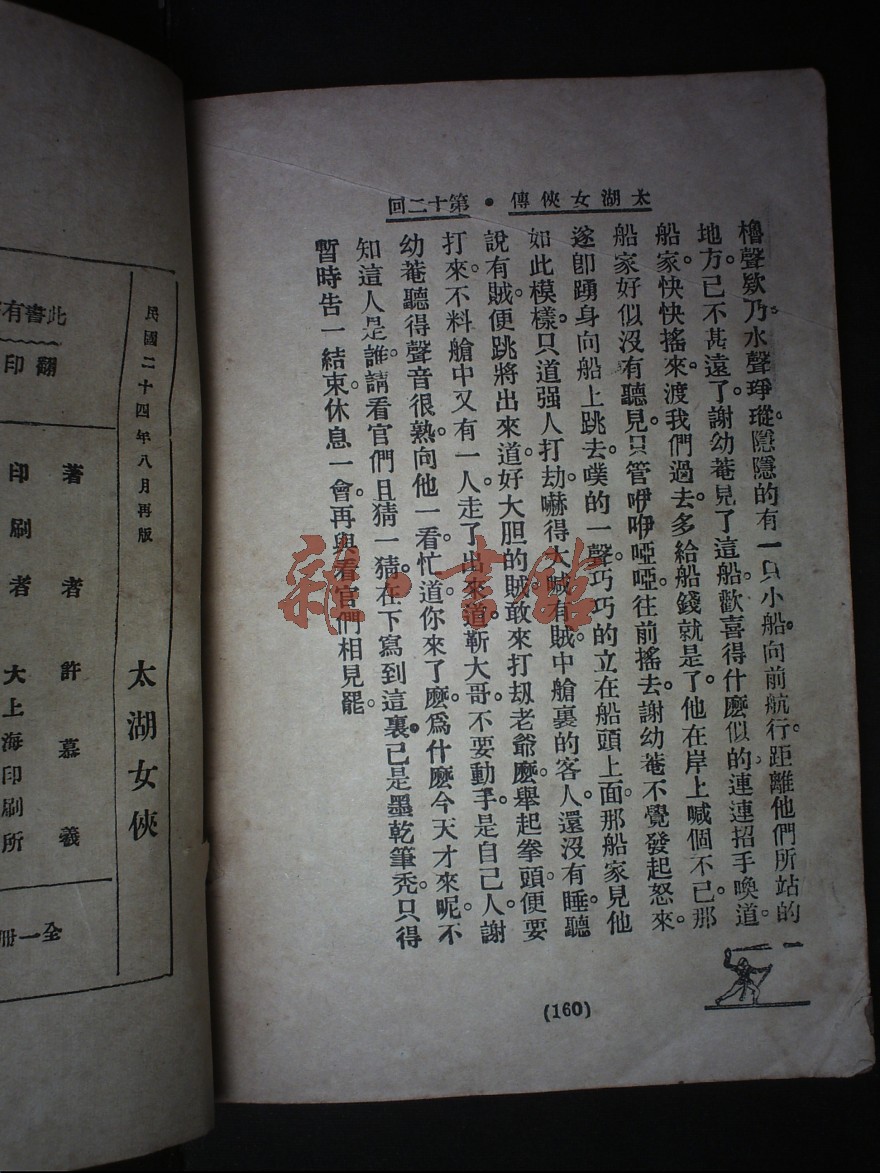 太湖女俠傳•第十二回
櫓聲欵乃。水聲琤瑽。隱隱的有一只小船。向前航行。距離他們所站的
地方。已不甚遠了。謝幼菴見了這船。歡喜得什麼似的。連連招手喚道。
船家。快快搖來。渡我們過去。多給船錢就是了。他在岸上喊個不已。那
船家好似沒有聽見。只管咿咿啞啞。往前搖去。謝幼菴不覺發起怒來。
遂卽踴身向船上跳去。噗的一聲。巧巧的立在船頭上面。那船家見他
如此模樣。只道强人打劫。嚇得大喊有賊。中艙裏的客人。還沒有睡。聽
說有賊。便跳將出來道。好大胆的賊。敢來打刼老爺麼。舉起拳頭。便要
打來。不料艙中又有一人。走了出來道。靳大哥。不要動手。是自己人。謝
幼菴聽得聲音很熟。向他一看。忙道。你來了麼。爲什麼今天才來呢。不
知這人是誰。請看官們且猜一猜。在下寫到這裏。已是墨乾筆禿。只得
暫時告一結束。休息一會。再與看官們相見罷。
(160)
雜·書館
此書有
翻印
民國二十四年八月再版
著者 許慕羲
印刷者 大上海印刷所
太湖女俠
全一冊